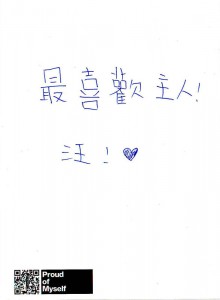 最喜歡主人!
汪！♥
Proud
of
Myself